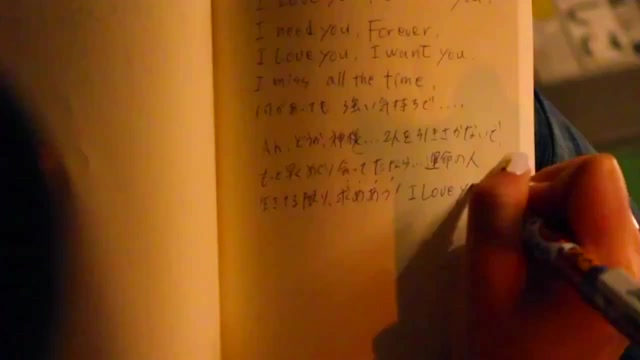 I need you, Forever,
I Love you, I want you.
I miss all the time,
何があっても 強い気持ちで....
Ah, どうか神様... 2人を引きさかないで
もっと早くめぐり会ってたなら... 運命の人
生きてる限り、求めあう! I Love y